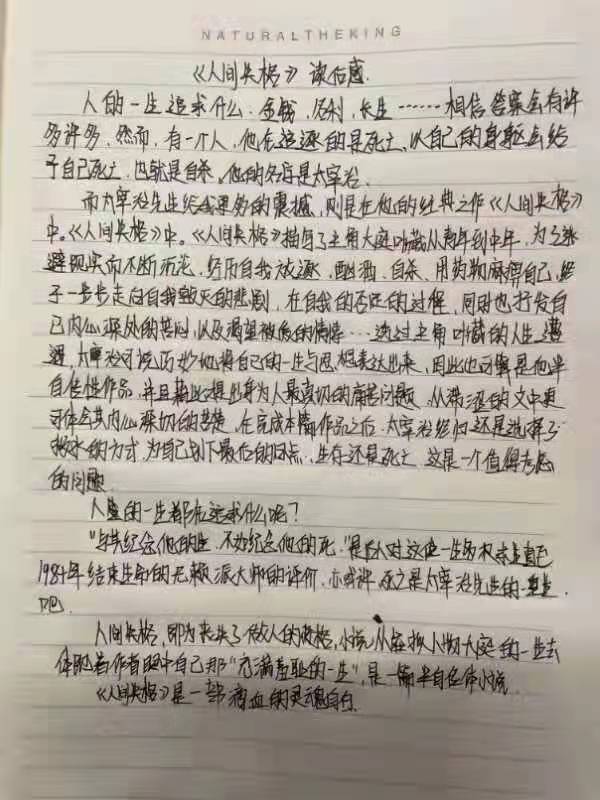 NATURALTHEKING
《人间失格》读后感
人的一生追求什么,金钱,名利,长生……相信答案会有许
多许多,然而,有一个人,他在追逐的是死亡,以自己的身躯会给
予自己死亡,也就是自杀。他的名字是太宰治。
而太宰治先生给我更多的震撼,则是在他的经典之作《人间失格》
中。《人间失格》中。《人间失格》描写了主角大庭叶藏从青年到中年,为了逃
避现实而不断沉沦,经历自我放逐,酗酒、自杀、用药物麻痹自己,终
于一步步走向自我毁灭的悲剧,在自我的否定的过程,同时也抒发自
己内心深处的苦闷,以及渴望被爱的情愫…透过主角叶藏的人生遭
遇,太宰治可说巧妙地将自己的一生与思想表达出来,因此也可算是他半
自传性作品,并且藉此提出身为人最真切的痛苦问题,从滞涩的文中更
可体会其内心深切的苦楚,在完成本篇作品之后,太宰治终归还是选择了
投水的方式,为自己划下最后的句点,生存还是死亡 这是一个值得考虑
的问题
人的一生都在追求什么呢?
"与其纪念他的生,不如纪念他的死,"是后人对这位一生
198年结束生命的无赖派大师的评价,亦或许,死之是太宰治先生的
吧。
人间失格,即为丧失了做人的资格,小说从 人物大庭的一生去
体现着作者眼中自己那"充满羞耻的一生",是一篇半自传体小说
《人间失格》是一部滴血的灵魂自白.